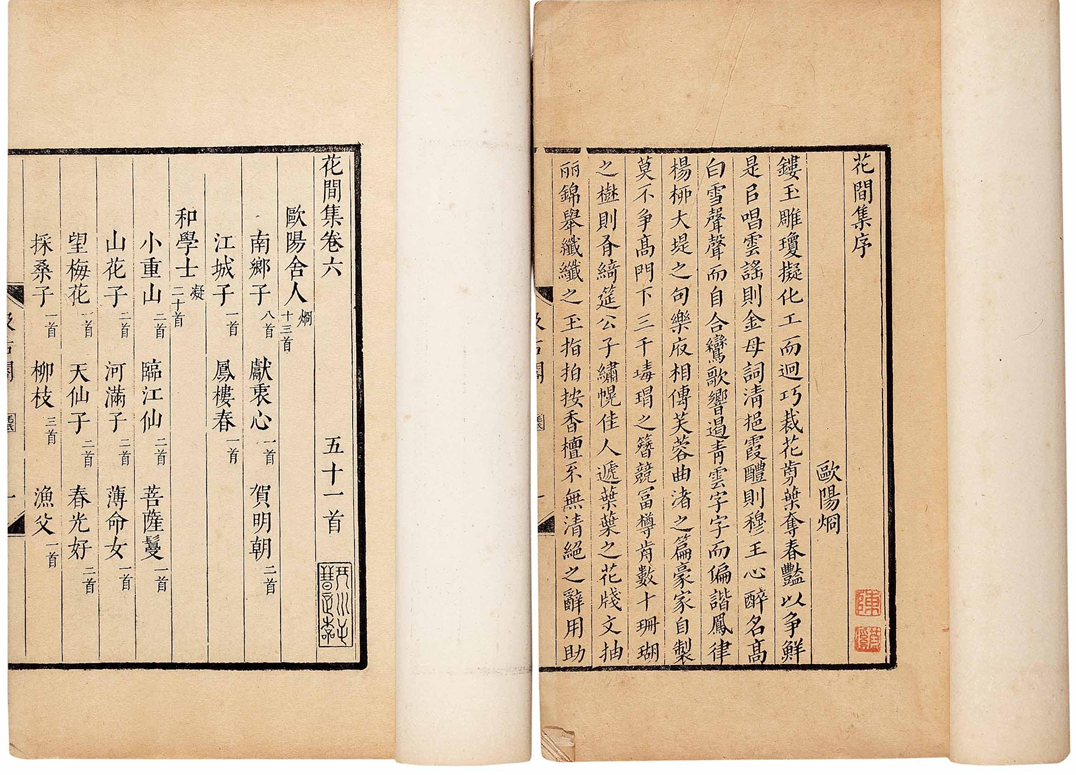 花間集序
歐陽炯
鏤玉雕瓊擬化工而迥巧裁花剪葉奪春豔以爭鮮
是㠯唱雲謠則金母詞清挹霞醴則穆王心醉名高
白雪聲聲而自合鸞歌響遏青雲字字而偏諧鳳律
楊柳大堤之句樂府相傳芙蓉曲渚之篇豪家自製
莫不爭高門下三千瑇瑁之簪競富樽前數十珊瑚
之樹則有綺筵公子繡幌佳人遞葉葉之花牋文抽
丽錦舉纖纖之玉指拍按香檀不無清絕之辭用助
花間集卷六 五十一首
歐陽舍人炯十三首
南鄉子八首 獻衷心一首 賀明朝二首
江城子一首 鳳樓春一首
和學士凝二十首
小重山二首 臨江仙二首 菩薩鬘一首
山花子二首 河滿子二首 薄命女一首
望梅花一首 天仙子二首 春光好二首
採桑子一首 柳枝三首 漁父一首